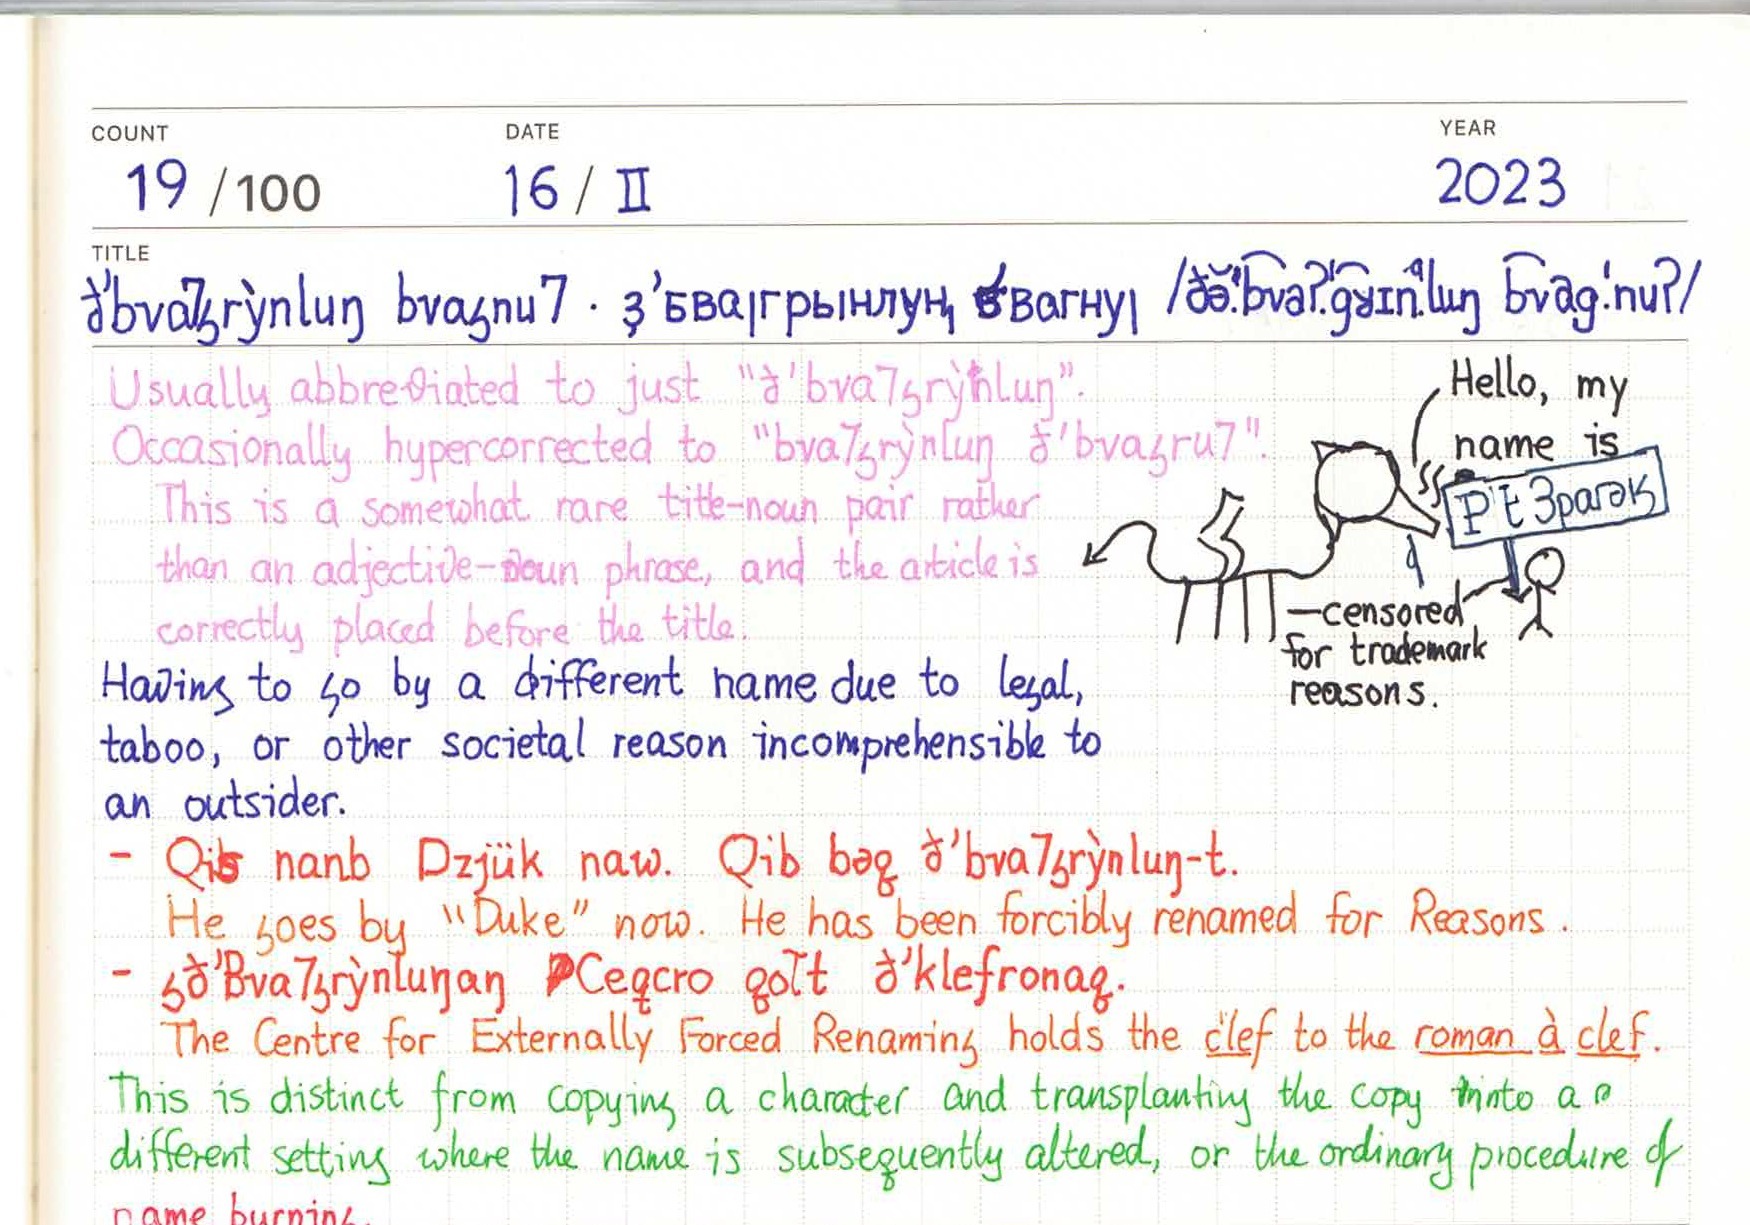 COUNT DATE YEAR
19 /100 16 / II 2023
TITLE
ð'bva7ȝrỳnluŋ bvaȝnu7 · ҙ'бва|грынлуң бвагну|
Usually abbreviated to just "ð'bva7ȝrỳnluŋ".
Occasionally hypercorrected to "bva7ȝrỳnluŋ ð'bvaȝru7".
This is a somewhat rare title-noun pair rather
than an adjective-noun phrase, and the article is
correctly placed before the title.
Hello, my
name is
—censored
for trademark
reasons.
Having to go by a different name due to legal,
taboo, or other societal reason incomprehensible to
an outsider.
- Qib nanb Dzjük naw. Qib bəq ð'bva7ȝrỳnluŋ-t.
He goes by "Duke" now. He has been forcibly renamed for Reasons.
- ȝð'Bva7ȝrỳnluŋaŋ Ceqcro qoĩt ð'klefronaq.
The Centre for Externally Forced Renaming holds the clef to the roman à clef.
This is distinct from copying a character and transplanting the copy into a
different setting where the name is subsequently altered, or the ordinary procedure of
name burning.